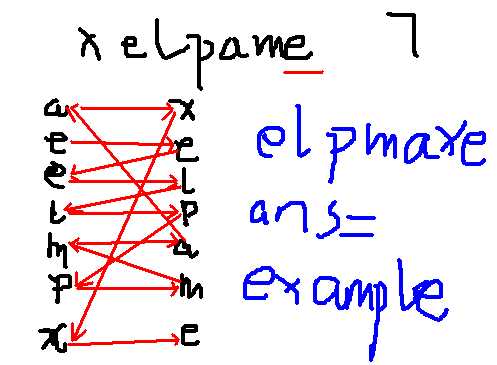 xelpame 7
a x
e e
e l
l p
m a
p m
x e
elpmaxe
ans=
example